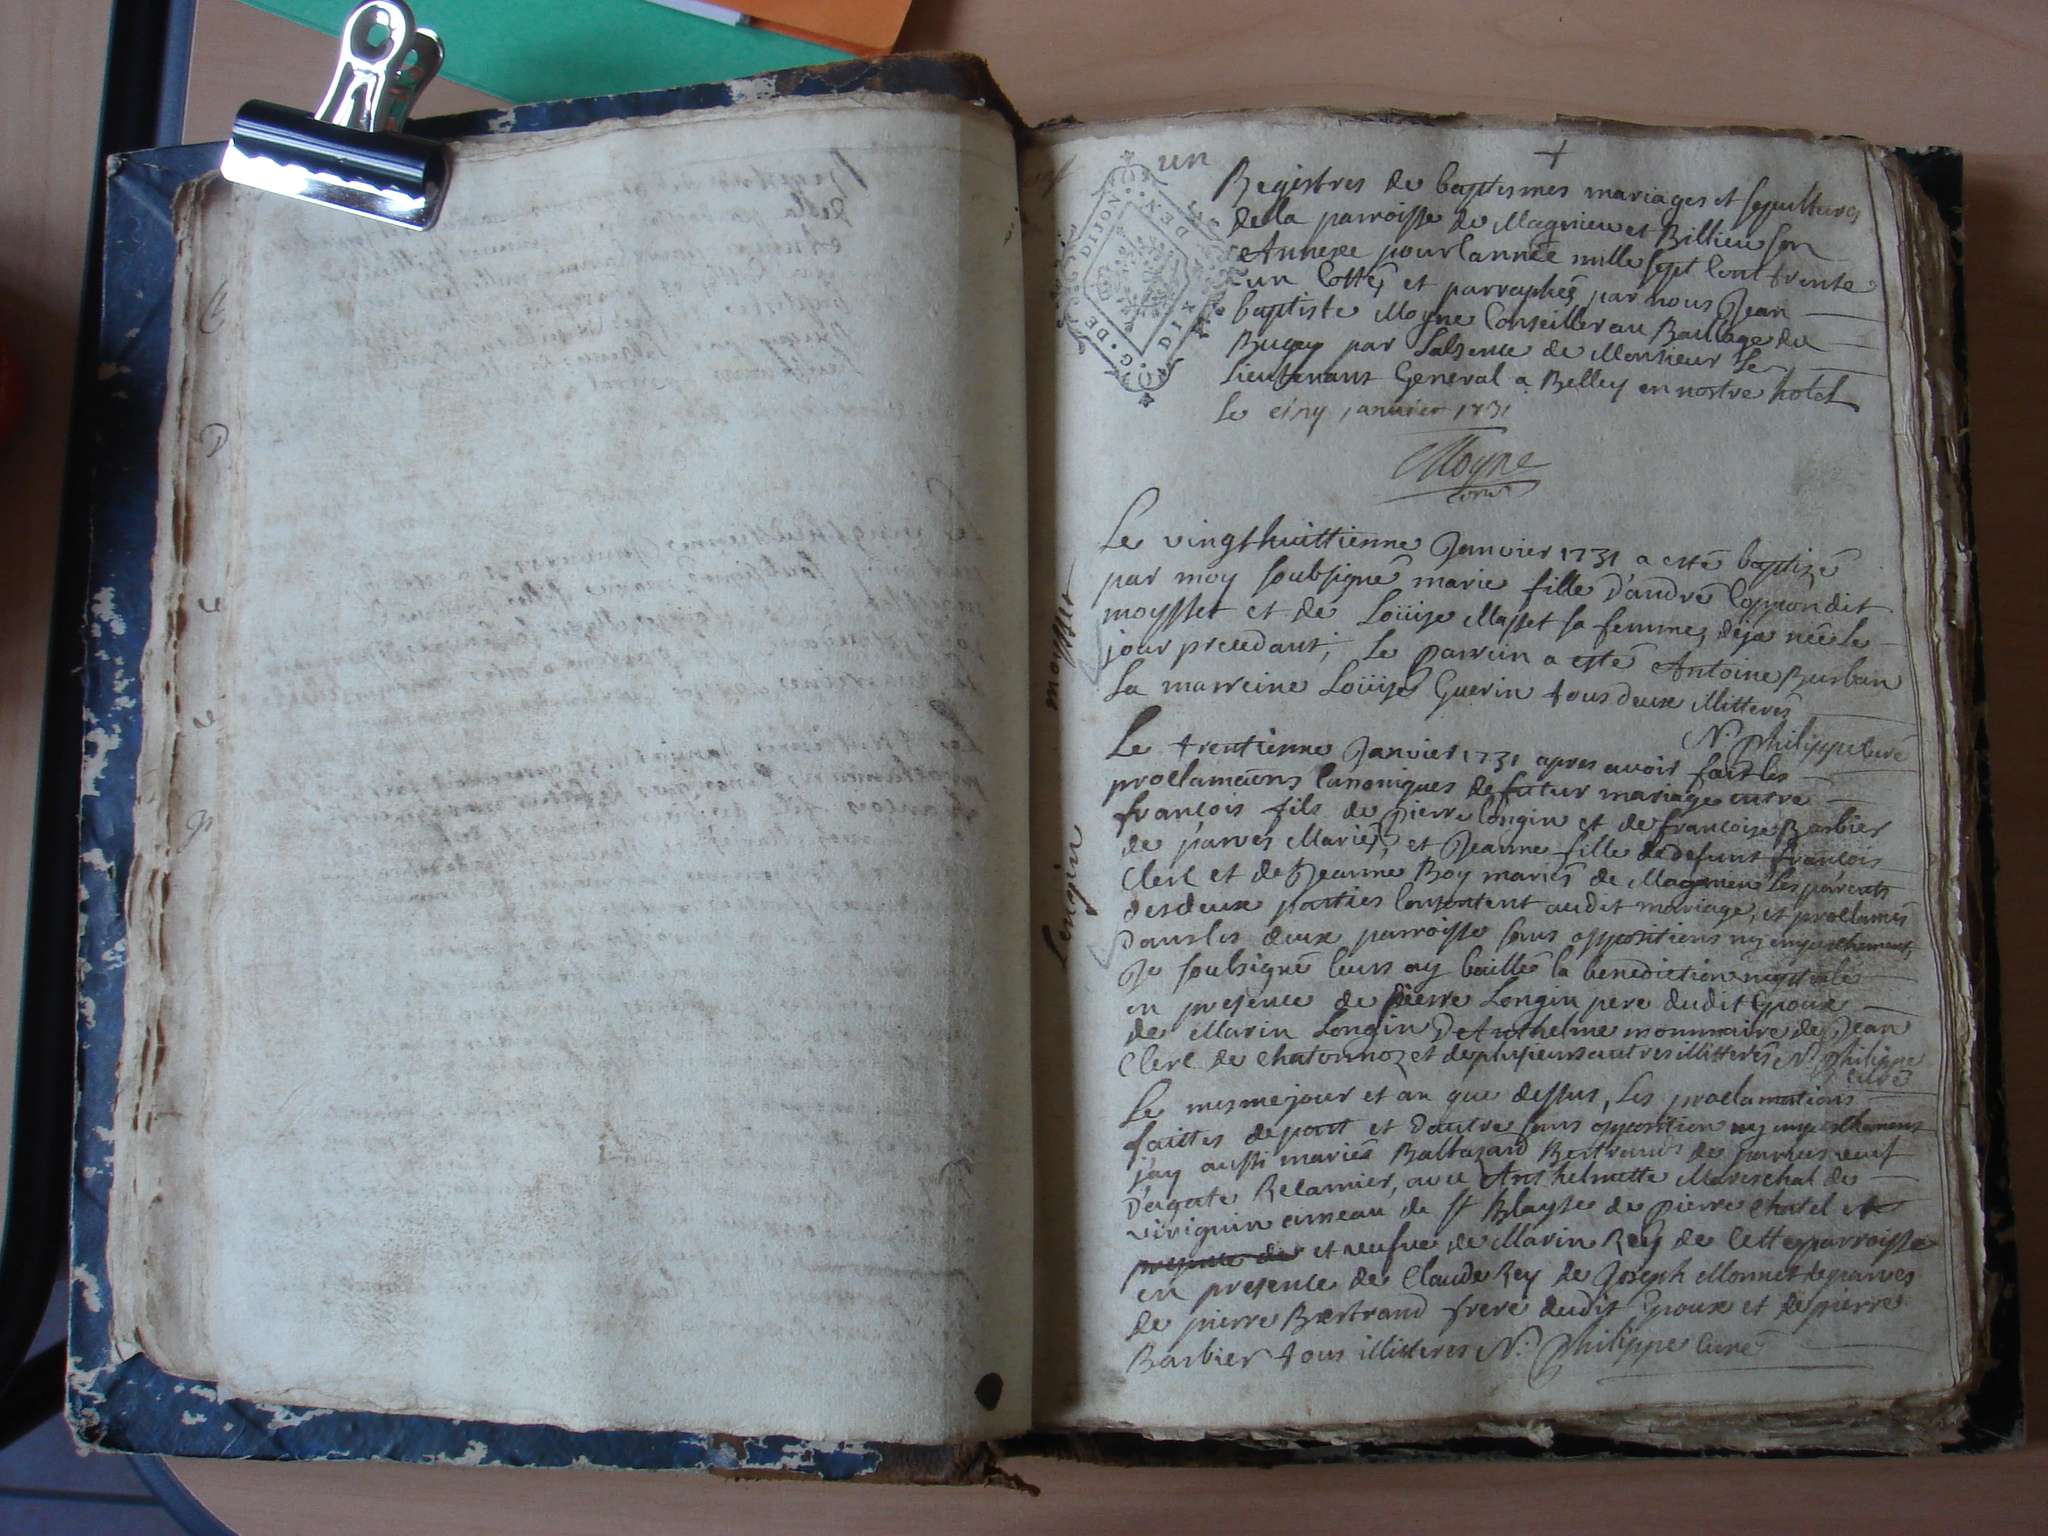 un
G. DE DIJON. DEN
DIX
Registres de baptismes mariages et sepultures
de la parroisse de Magnieu et Billieu son
Annexe pour l'année mille sept cent trente
un Cottés et parraphés par nous Jean
baptiste Moyne Conseiller au Bailliage du
Bugey par Labsence de Monsieur Le
Lieutenant General a Belley en nostre hotel
Le cinq janvier 1731
Moyne
moysset
Le vingthuittienne Janvier 1731 a esté baptizé
par moy soubsigné marie fille d'andré dit
moysset et de Loüise Masset sa femme, deja née le
jour precedant; Le parrein a esté Antoine Burban
La marreine Loüise Guerin tous deux illitterés
N. Philippe curé
Longin
Le trentienne Janvier 1731 apres avoir fait les
proclamaons canoniques de futur mariage entre
françois fils de Pierre Longin et de francoise Barbier
de parves Mariés, et Jeanne fille de defunt françois
Clerc et de Jeanne Roy mariés de Magnieu les parents
des deux parties consentent audit mariage, et proclamés
dans les deux parroisse sans oppositions ny empeschement,
Je soubsigné leurs ay baillé la benediction nuptiale
en presence de pierre Longin pere dudit Epoux
de Marin Longin D'Anthelme monmaire de Jean
Clerc de chatonnoz et de plusieurs autres illitterés N. Philippe
curé
Le mesme jour et an que dessus, les proclamations
faittes de part et d'autre sans opposition ny empeschement
j'ay aussi mariés Baltazard Bertrand de parves veuf
D'agate Relamier, avec Anthelmette Mareschal de
virignin ameau de st Blayse de pierre chatel et
presence de et veufve de Marin Rey de cette parroisse
en presence de Claude Rey de Joseph Monnet de parves
de pierre Bertrand frere dudit Epoux et de pierre
Barbier tous illitteres N. Philippe curé